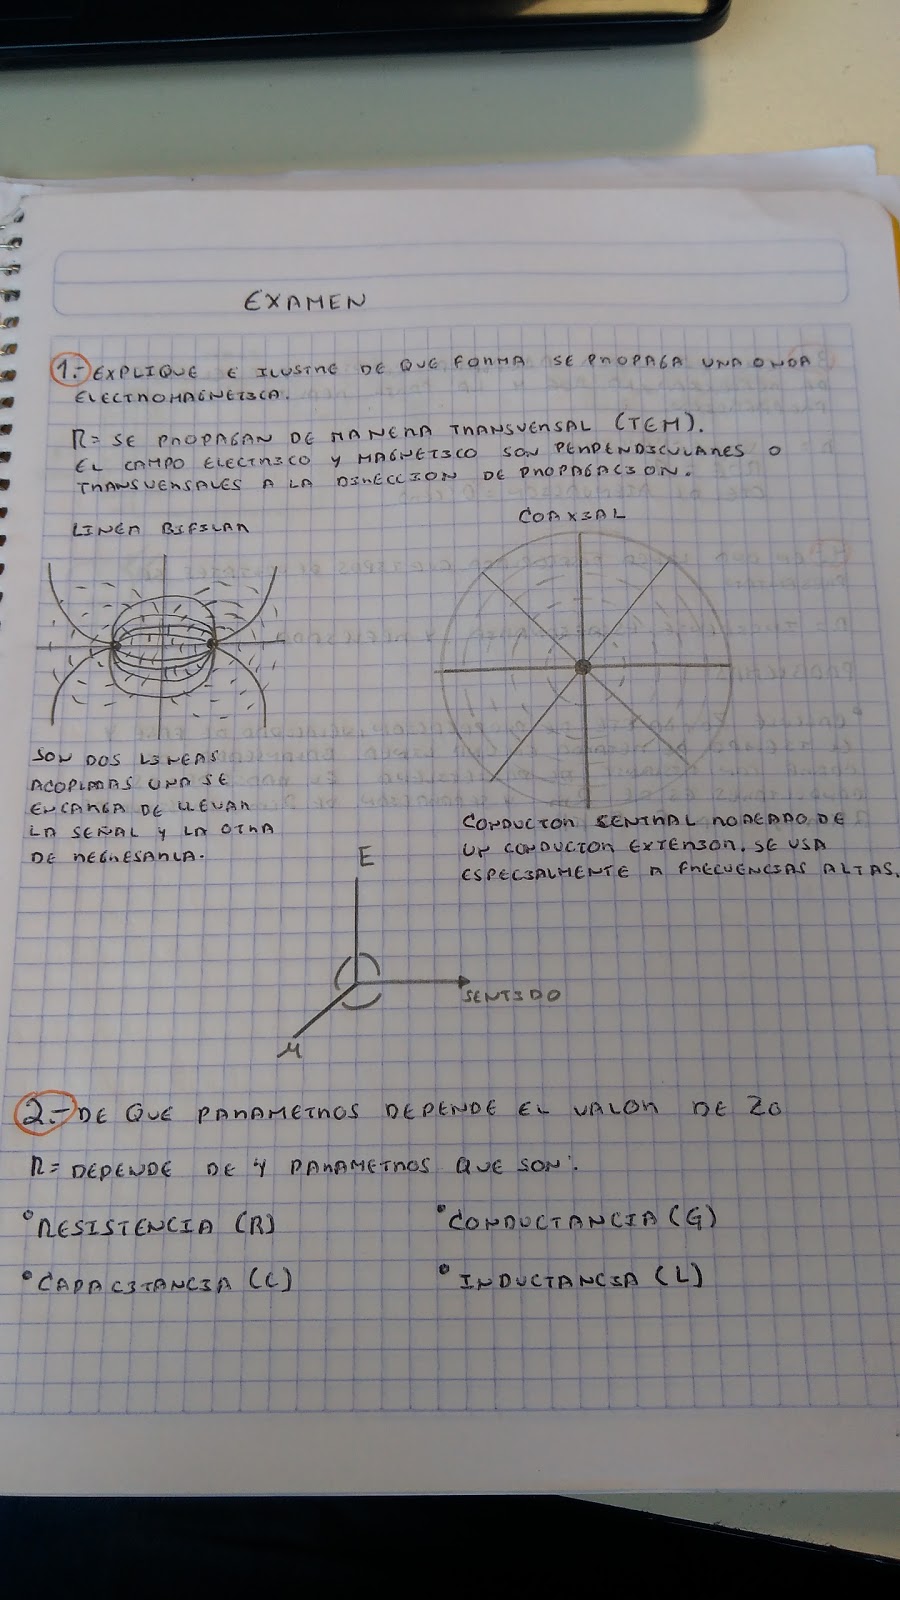 EXAMEN
1.- EXPLIQUE E ILUSTRE DE QUE FORMA SE PROPAGA UNA ONDA
ELECTROMAGNETICA.
R= SE PROPAGAN DE MANERA TRANSVERSAL (TEM).
EL CAMPO ELECTRICO Y MAGNETICO SON PERPENDICULARES O
TRANSVERSALES A LA DIRECCION DE PROPAGACION.
LINEA BIFILAR
COAXIAL
SON DOS LINEAS
ACOPLADAS UNA SE
ENCARGA DE LLEVAR
LA SEÑAL Y LA OTRA
DE REGRESARLA.
CONDUCTOR SENTRAL RODEADO DE
UN CONDUCTOR EXTERIOR. SE USA
ESPECIALMENTE A FRECUENCIAS ALTAS.
E
SENTIDO
M
2.- DE QUE PARAMETROS DEPENDE EL VALOR DE ZO
R= DEPENDE DE 4 PARAMETROS QUE SON:
° RESISTENCIA (R)
° CONDUCTANCIA (G)
° CAPACITANCIA (C)
° INDUCTANCIA (L)